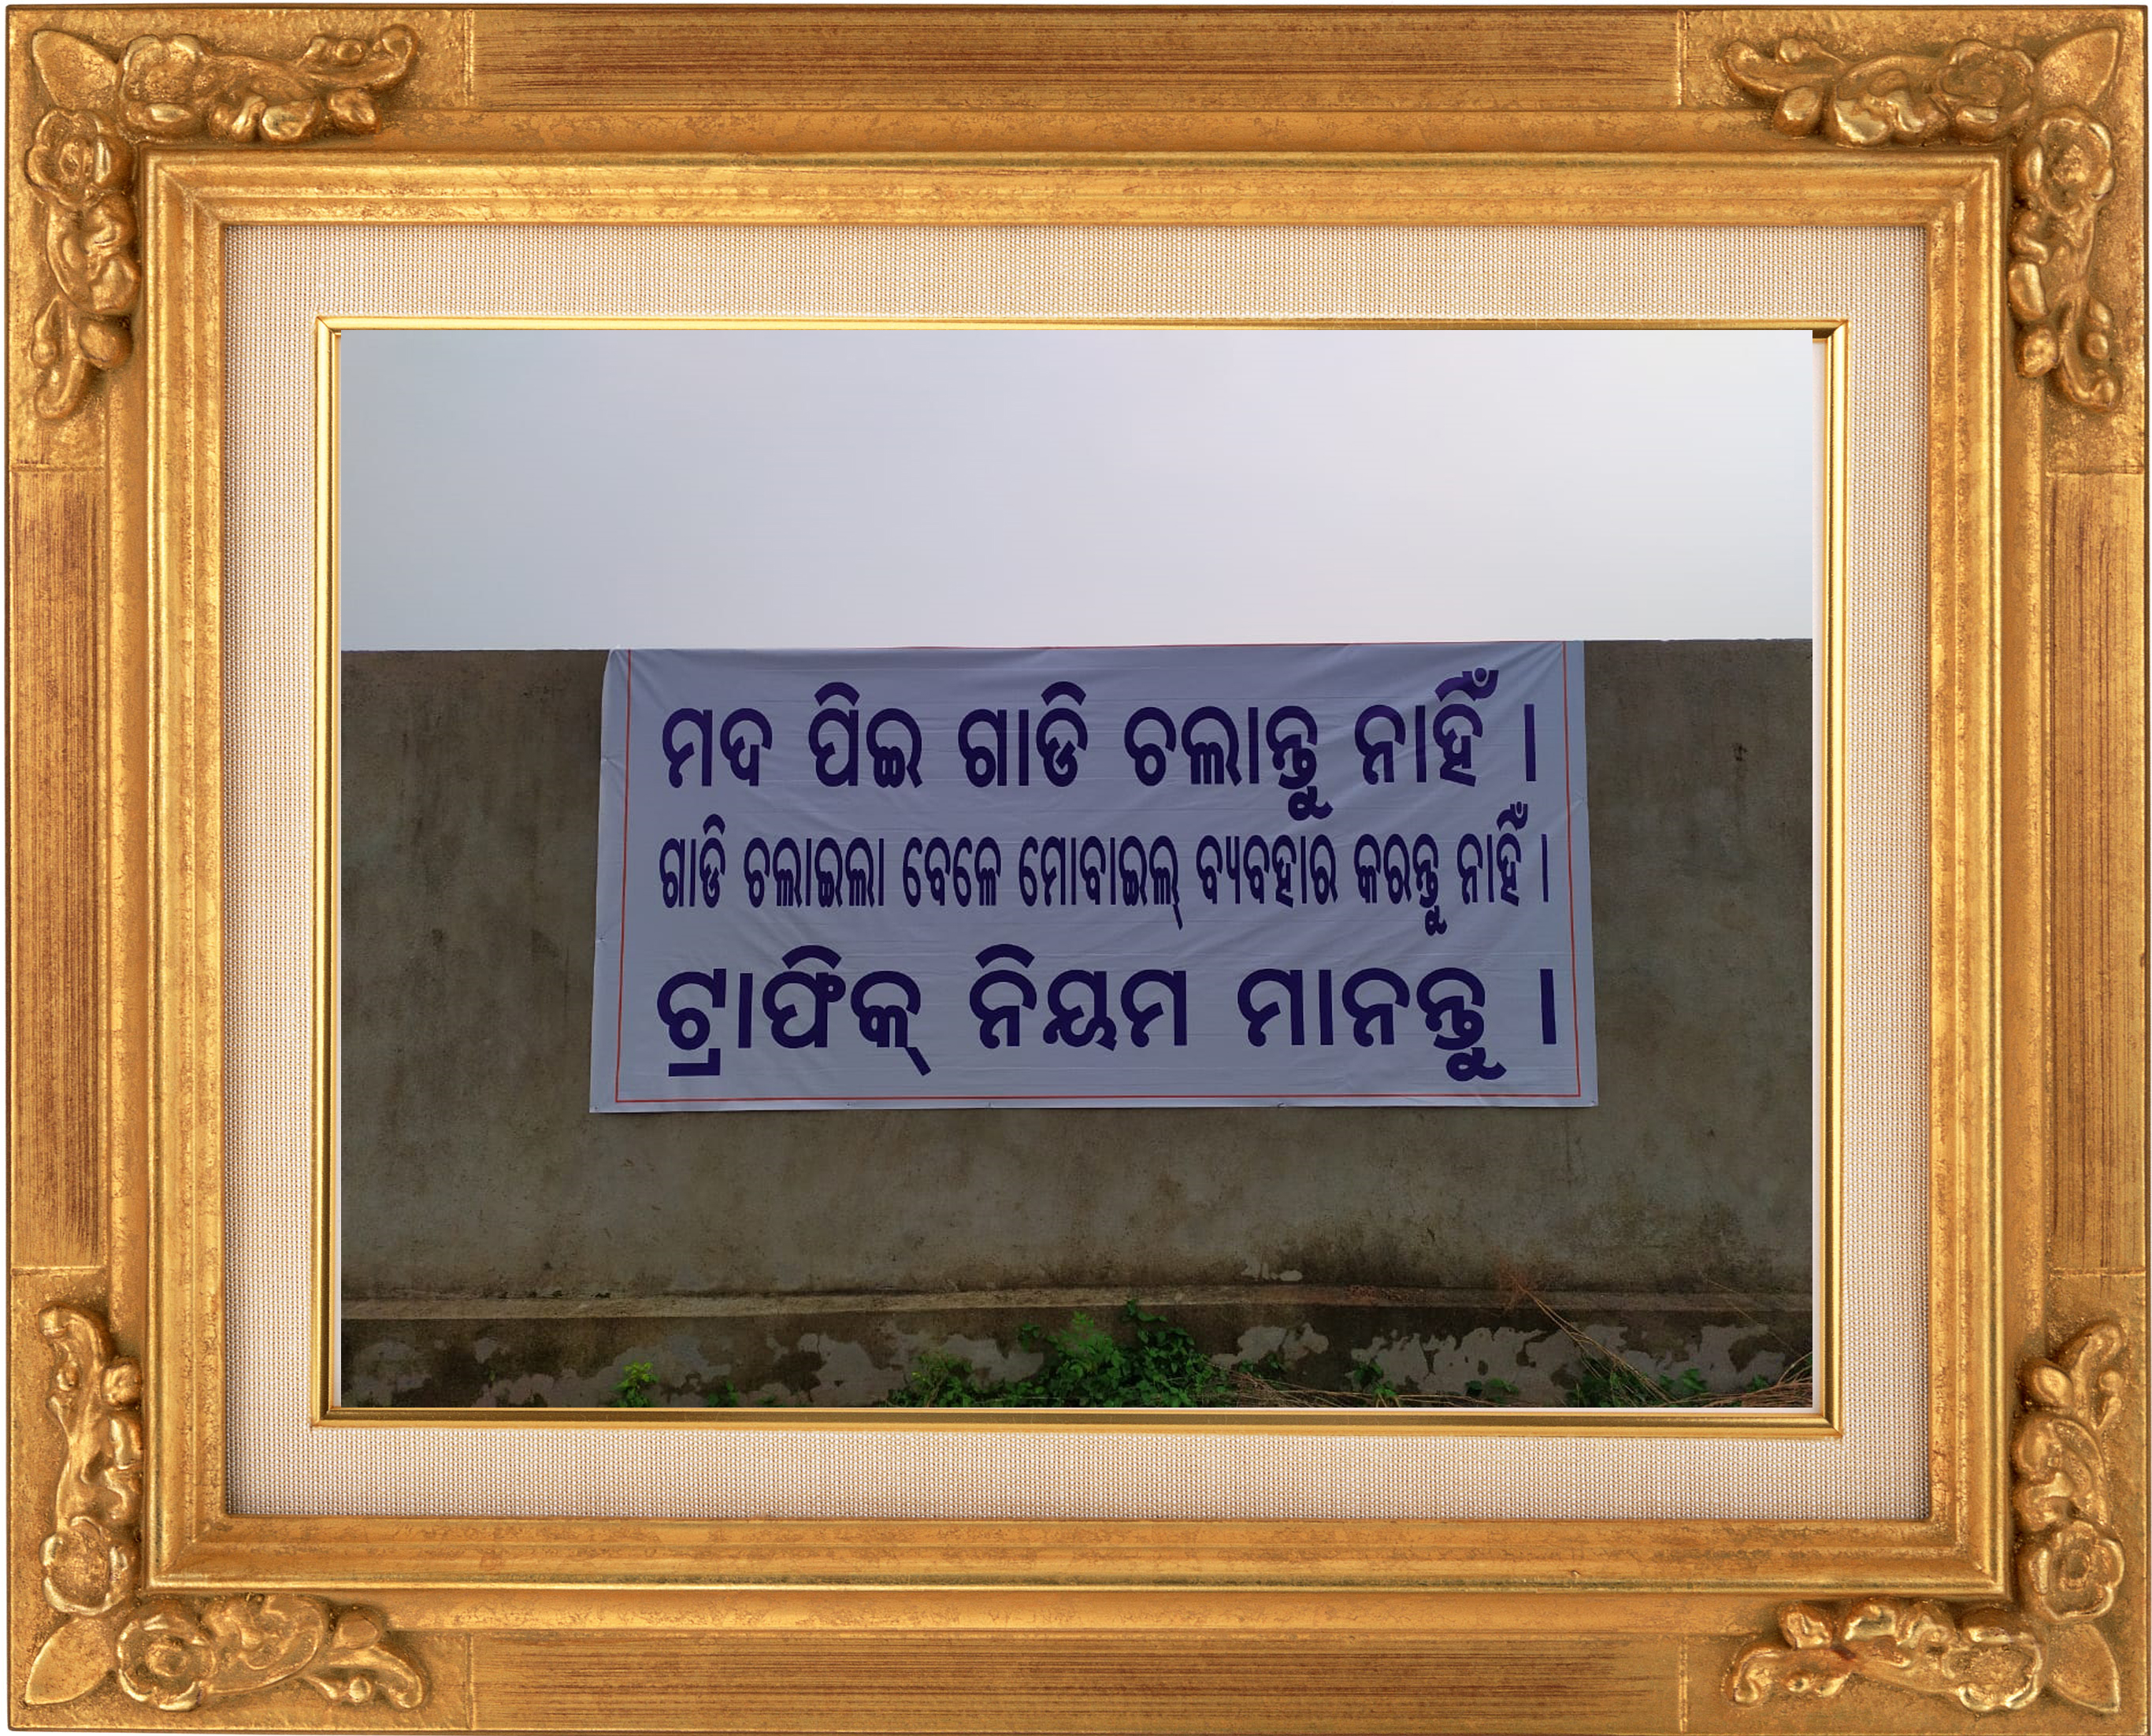 ମଦ ପିଇ ଗାଡି ଚଲାନ୍ତୁ ନାହିଁ ।
ଗାଡି ଚଲାଇଲା ବେଳେ ମୋବାଇଲ୍ ବ୍ୟବହାର କରନ୍ତୁ ନାହିଁ ।
ଟ୍ରାଫିକ୍ ନିୟମ ମାନନ୍ତୁ ।